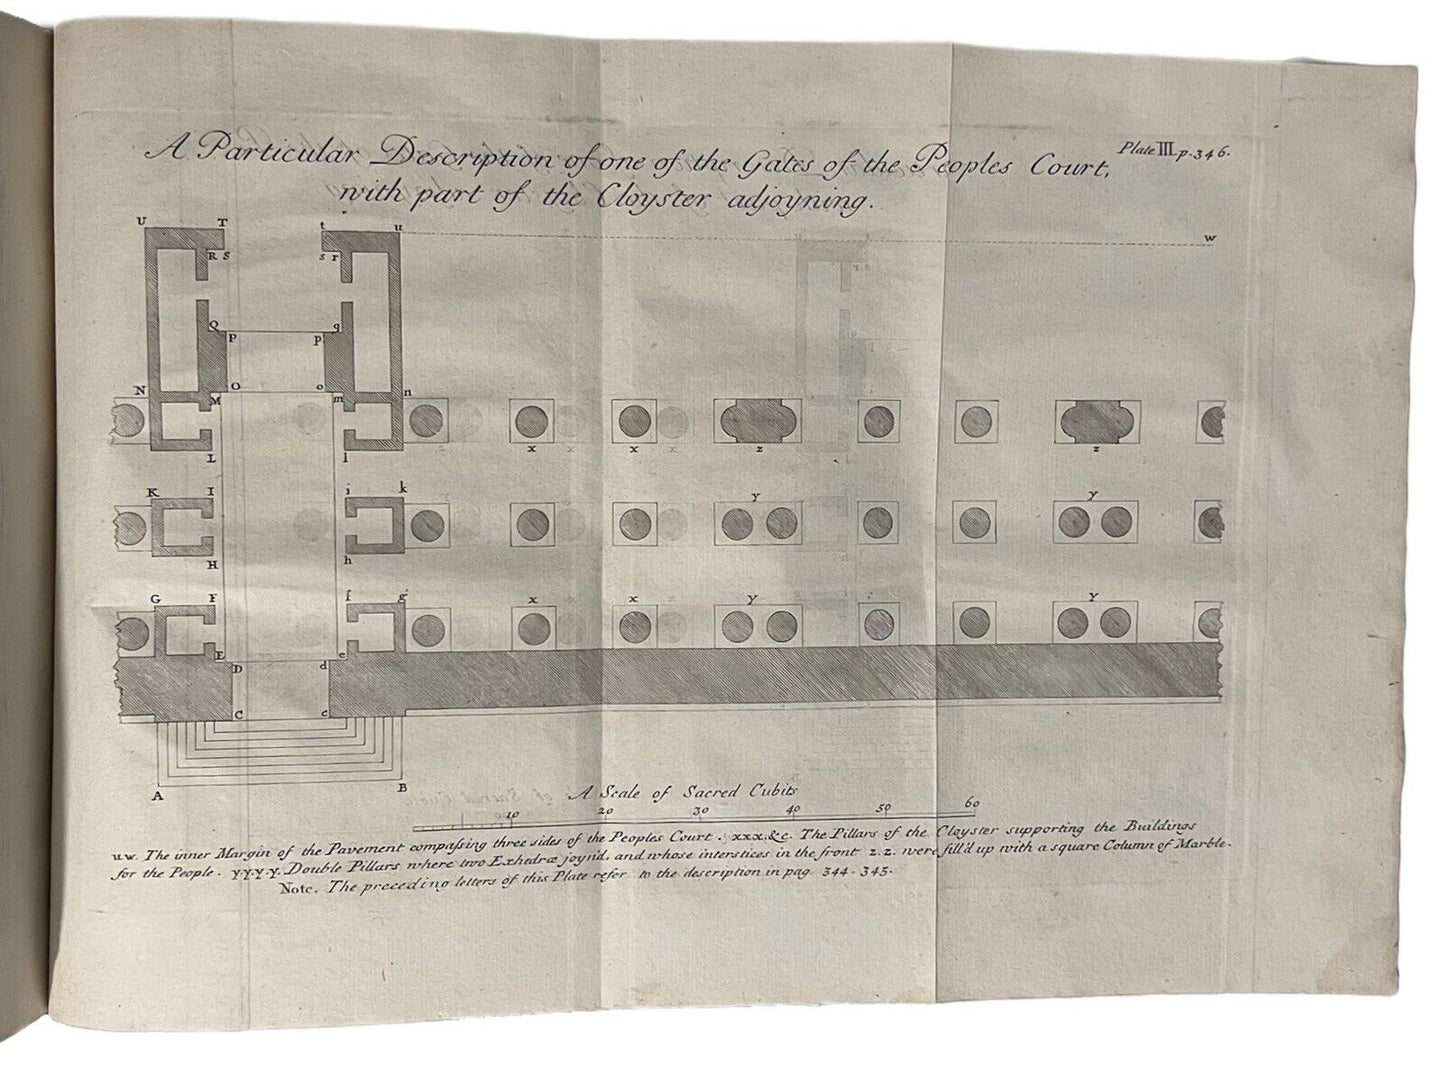 Plate III. p. 346.
A Particular Description of one of the Gates of the Peoples Court,
with part of the Cloyster adjoyning.
U T t u w
R S s r
Q q
P p
N O o n
M m
x x z z
L l
K I i k
y y
H h
G F f g x x y y
E e
D d
C c
A B
A Scale of Sacred Cubits
10 20 30 40 50 60
u w. The inner Margin of the Pavement compaſsing three sides of the Peoples Court. xxx.&c. The Pillars of the Cloyster supporting the Buildings
for the People. y.y.y.y. Double Pillars where two Exhedræ joyn'd, and whose interstices in the front z. z. were fill'd up with a square Column of Marble.
Note. The preceding letters of this Plate refer to the description in pag. 344. 345.